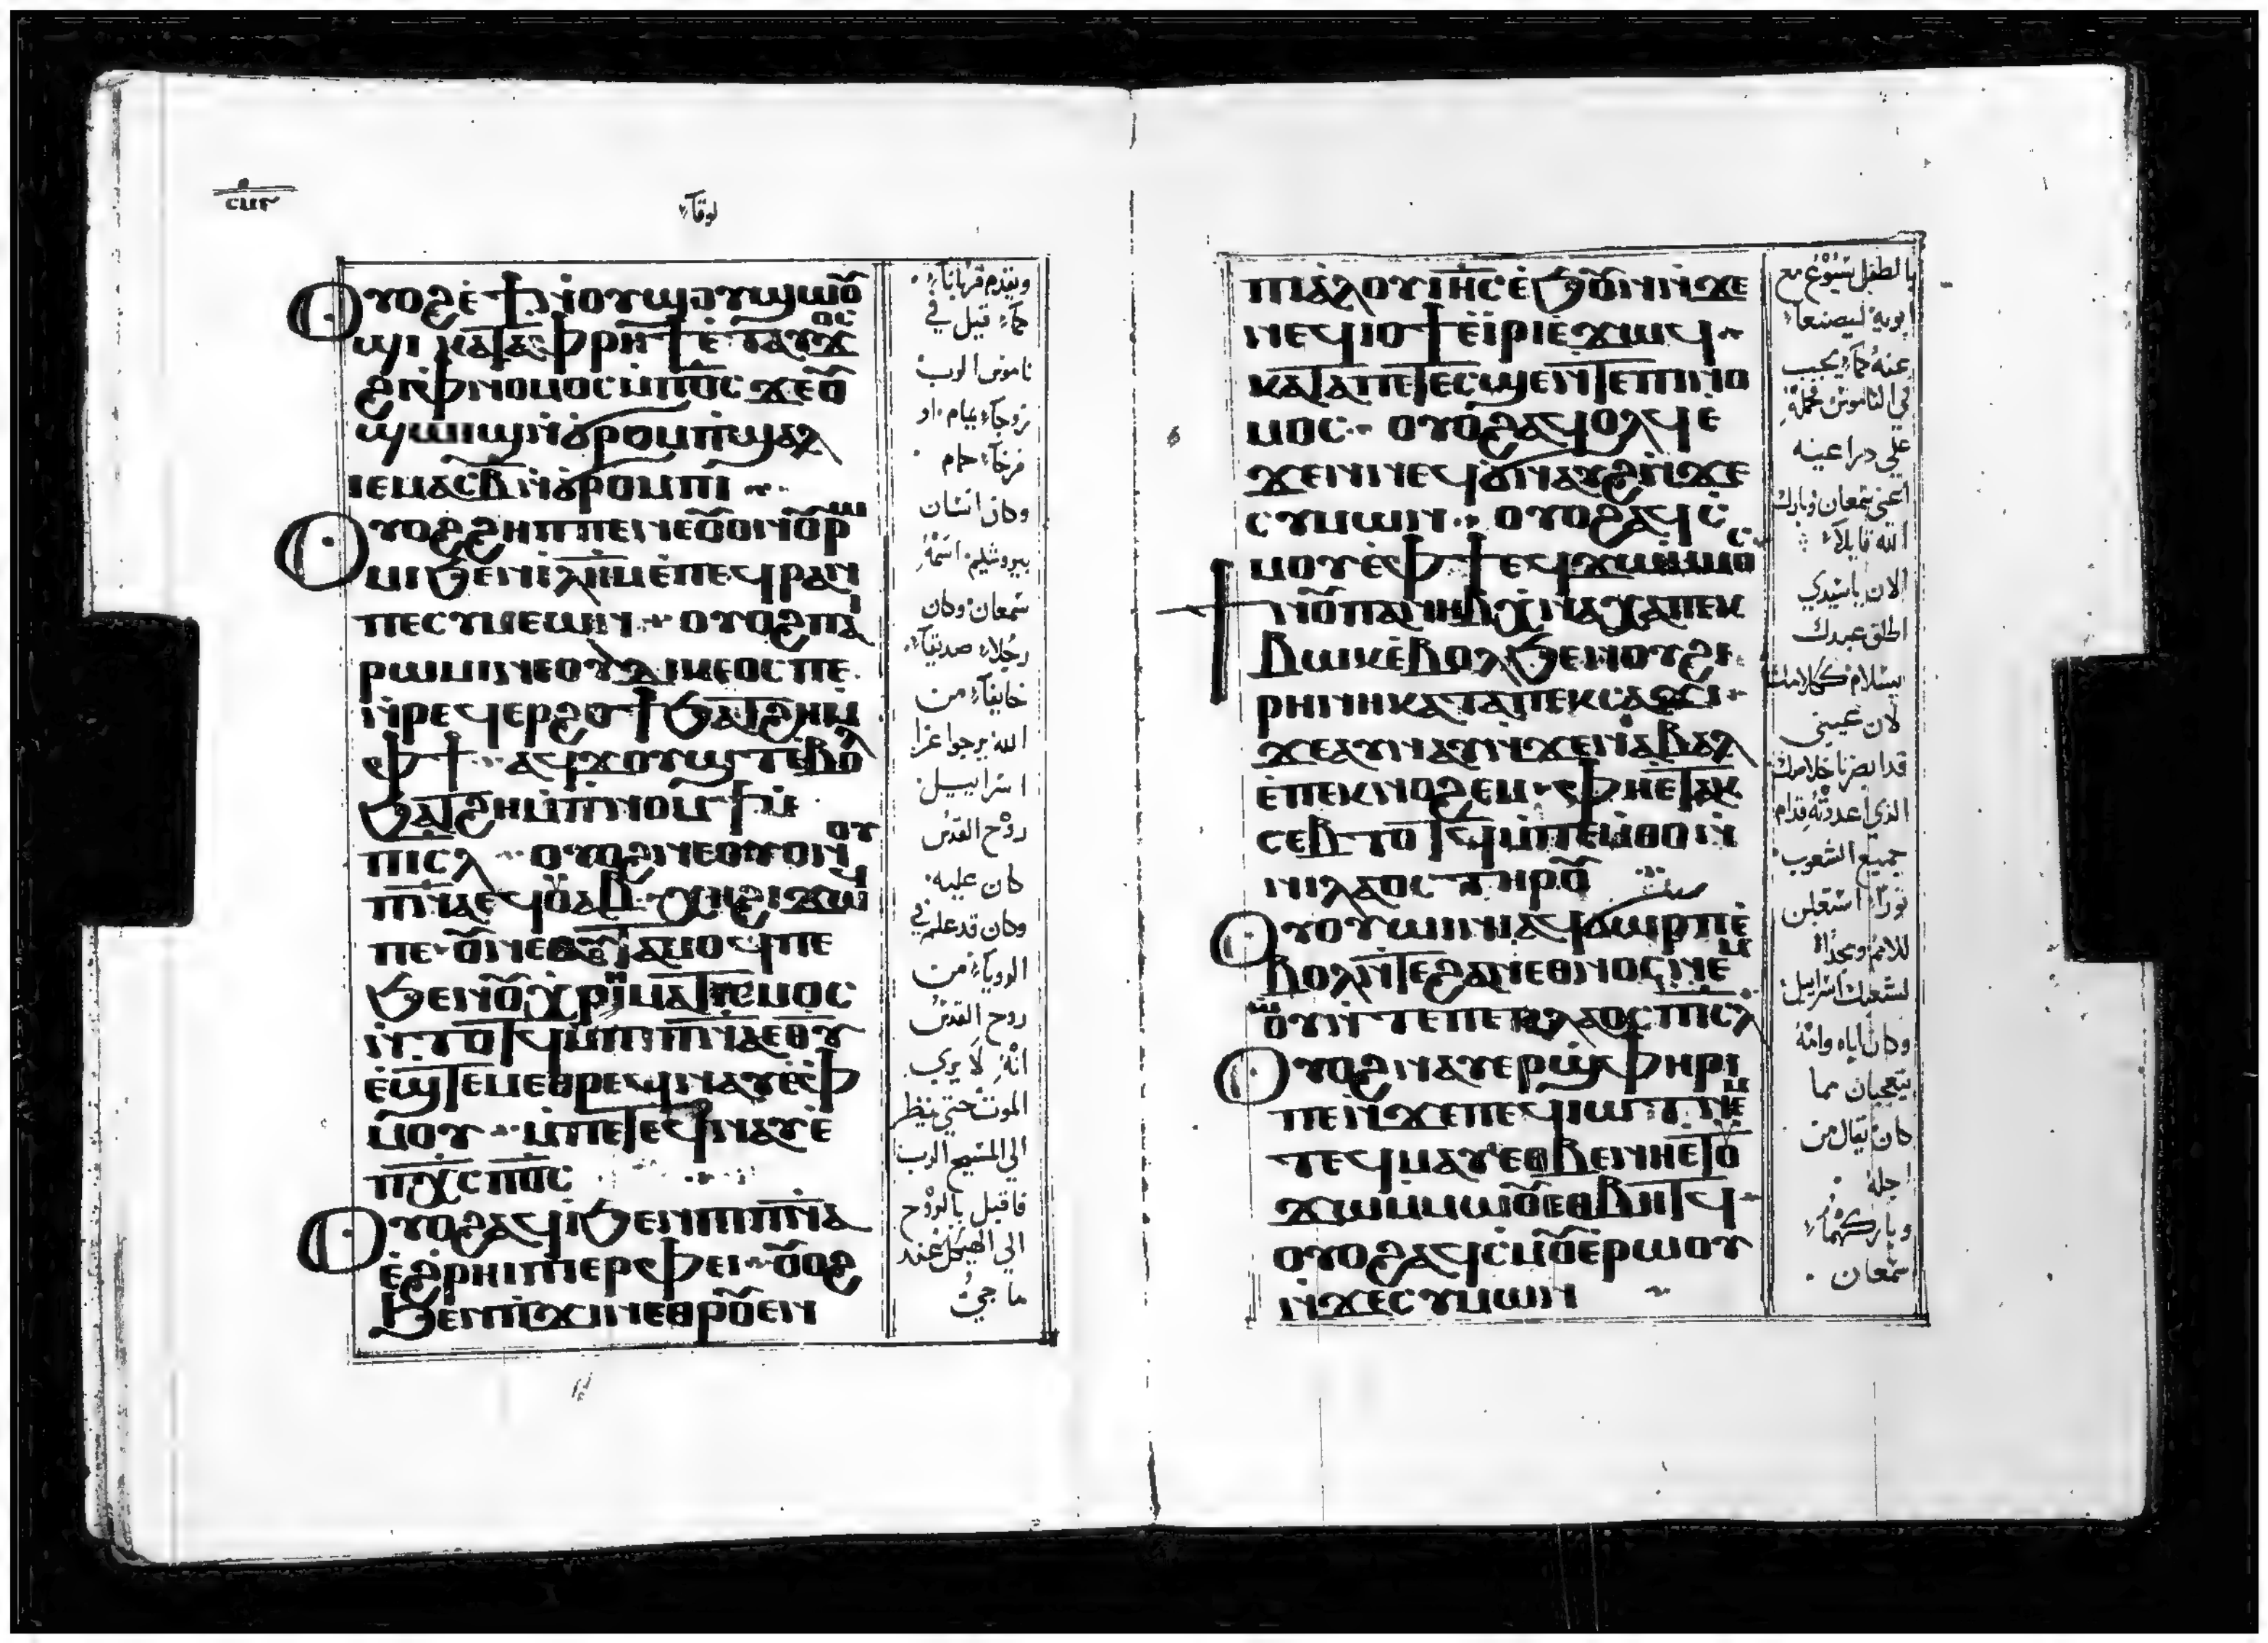 لوقا
Ⲟⲩⲟϩ ⲉ̀ϯ ⲛ̀ⲟⲩϣⲟⲩϣⲱⲟⲩ
ϣⲓ ⲕⲁⲧⲁ ⲫⲣⲏϯ ⲉ̀ⲧⲁⲩϫⲟⲥ
ϩⲓ ⲫⲛⲟⲙⲟⲥ ⲙ̀ⲡⲟ̅ⲥ̅ ϫⲉ ⲟⲩ
ϣⲱⲓϣ ⲛ̀ϭⲣⲟⲙⲡϣⲁⲗ
ⲓⲉ ⲙⲁⲥ ⲃ̅ ⲛ̀ϭⲣⲟⲙⲡⲓ
Ⲟⲩⲟϩ ϩⲏⲡⲡⲉ ⲛⲉ ⲟⲩⲟⲛ ⲟⲩⲣⲱ
ⲙⲓ ϧⲉⲛ ⲓⲗ̅ⲏ̅ⲙ̅ ⲉ̀ⲡⲉϥⲣⲁⲛ
ⲡⲉ ⲥⲩⲙⲉⲱⲛ ⲟⲩⲟϩ ⲡⲁⲓ
ⲣⲱⲙⲓ ⲛⲉ ⲟⲩⲇⲓⲕⲉⲟⲥ ⲡⲉ
ⲛ̀ⲣⲉϥⲉⲣϩⲟϯ ϧⲁⲧϩⲏ ⲙ̀
ⲫϯ ⲁϥϫⲟⲩϣⲧ ⲉ̀ⲃⲟⲗ
ϧⲁⲧϩⲏ ⲙ̀ⲡⲛⲟⲙϯ ⲙ̀
ⲡⲓⲥ̅ⲗ̅ ⲟⲩⲟϩ ⲛⲉ ⲟⲩⲟⲛ ⲟⲩ
ⲡ̅ⲛ̅ⲁ̅ ⲉϥⲟⲩⲁⲃ ⲭⲏ ϩⲓϫⲱϥ
ⲡⲉ ⲟⲩⲟϩ ⲛⲉ ⲁⲩⲧⲁⲙⲟϥ ⲡⲉ
ϧⲉⲛ ⲟⲩⲭⲣⲏⲙⲁⲧⲓⲥⲙⲟⲥ
ⲛ̀ⲧⲟⲧϥ ⲙ̀ⲡⲓⲡ̅ⲛ̅ⲁ̅ ⲉⲑⲩ
ⲉ̀ϣⲧⲉⲙⲉⲑⲣⲉϥⲛⲁⲩ ⲉ̀ⲫ
ⲙⲟⲩ ⲙ̀ⲡⲉⲧⲉϥⲛⲁⲩ ⲉ̀
ⲡⲭ̅ⲥ̅ ⲡⲟ̅ⲥ̅
Ⲟⲩⲟϩ ⲁϥⲓ̀ ϧⲉⲛ ⲡⲓⲡ̅ⲛ̅ⲁ̅
ⲉ̀ϩⲣⲏⲓ ⲡⲓⲉⲣⲫⲉⲓ ⲟⲩⲟϩ
ϧⲉⲛ ⲡϫⲓⲛⲉⲑⲣⲟⲩⲉⲛ
ونقدم قربانا
كما قيل في
ناموس الرب
زوجا يمام او
فرخا حمام
وكان انسان
بيروشليم اسمه
سمعان وكان
رجلا صديقا
خايفا من
الله يرجوا عزا
اسراييل
روح القدس
كان عليه
وكان قد علم في
الرويا من
روح القدس
انه لا يري
الموت حتي ينظر
الي المسيح الرب
فاقبل بالروح
الي الهيكل عند
ما جي
ⲡⲓⲁⲗⲟⲩ ⲓⲏ̅ⲥ̅ ⲉ̀ϧⲟⲩⲛ ⲛ̀ϫⲉ
ⲛⲉϥⲓⲟϯ ⲉ̀ⲓⲣⲓ ⲉ̀ϫⲱϥ
ⲕⲁⲧⲁ ⲡⲉⲧⲉⲥϣⲉ ⲛ̀ⲧⲉ ⲡⲓⲛⲟ
ⲙⲟⲥ ⲟⲩⲟϩ ⲁϥⲟⲗϥ ⲉ̀
ϫⲉⲛ ⲛⲉϥϭⲛⲁⲩϩ ⲛ̀ϫⲉ
ⲥⲩⲙⲱⲛ ⲟⲩⲟϩ ⲁϥⲥ̀
ⲙⲟⲩ ⲉ̀ⲫϯ ⲉϥϫⲱ ⲙ̀ⲙⲟⲥ
ϯⲛⲟⲩ ⲡⲁⲛⲏⲃ ⲭⲛⲁⲭⲁ ⲡⲉⲕ
ⲃⲱⲕ ⲉ̀ⲃⲟⲗ ϧⲉⲛ ⲟⲩϩⲓ
ⲣⲏⲛⲏ ⲕⲁⲧⲁ ⲡⲉⲕⲥⲁϫⲓ
ϫⲉ ⲁⲩⲛⲁⲩ ⲛ̀ϫⲉ ⲛⲁⲃⲁⲗ
ⲉ̀ⲡⲉⲕⲛⲟϩⲉⲙ ⲫⲏⲉⲧⲁⲕ
ⲥⲉⲃⲧⲱⲧϥ ⲙ̀ⲡⲉⲙ̀ⲑⲟ ⲛ̀
ⲛⲓⲗⲁⲟⲥ ⲧⲏⲣⲟⲩ
Ⲟⲩⲟⲩⲱⲓⲛⲓ ⲁϥϭⲱⲣⲡ ⲉ̀
ⲃⲟⲗ ⲛ̀ⲧⲉ ϩⲁⲛⲉⲑⲛⲟⲥ ⲛⲉⲙ
ⲟⲩⲱⲟⲩ ⲛ̀ⲧⲉ ⲡⲉⲕⲗⲁⲟⲥ ⲡⲓⲥ̅ⲗ̅
Ⲟⲩⲟϩ ⲛⲁⲩⲉⲣϣⲫⲏⲣⲓ
ⲡⲉ ⲛ̀ϫⲉ ⲡⲉϥⲓⲱⲧ ⲛⲉⲙ
ⲧⲉϥⲙⲁⲩ ⲉⲑⲃⲉ ⲛⲏⲉⲧⲟⲩ
ϫⲱ ⲙ̀ⲙⲱⲟⲩ ⲉⲑⲃⲏⲧϥ
ⲟⲩⲟϩ ⲁϥⲥ̀ⲙⲟⲩ ⲉ̀ⲣⲱⲟⲩ
ⲛ̀ϫⲉ ⲥⲩⲙⲱⲛ
بالطفل يسوع مع
ابويه ليصنعا
عنه كما يجب
في الناموس فحمله
علي دراعيه
اعني سمعان وبارك
الله قايلا
الان ياسيدي
اطلق عبدك
بسلام ككلامك
لان عيني
قد ابصرتا خلاصك
الذي اعددته قدام
جميع الشعوب
نورا استعلن
للامم ومجدا
لشعبك اسراييل
وكان اباه وامه
يتعجبان مما
كان يقال من
اجله
وباركهما
سمعان